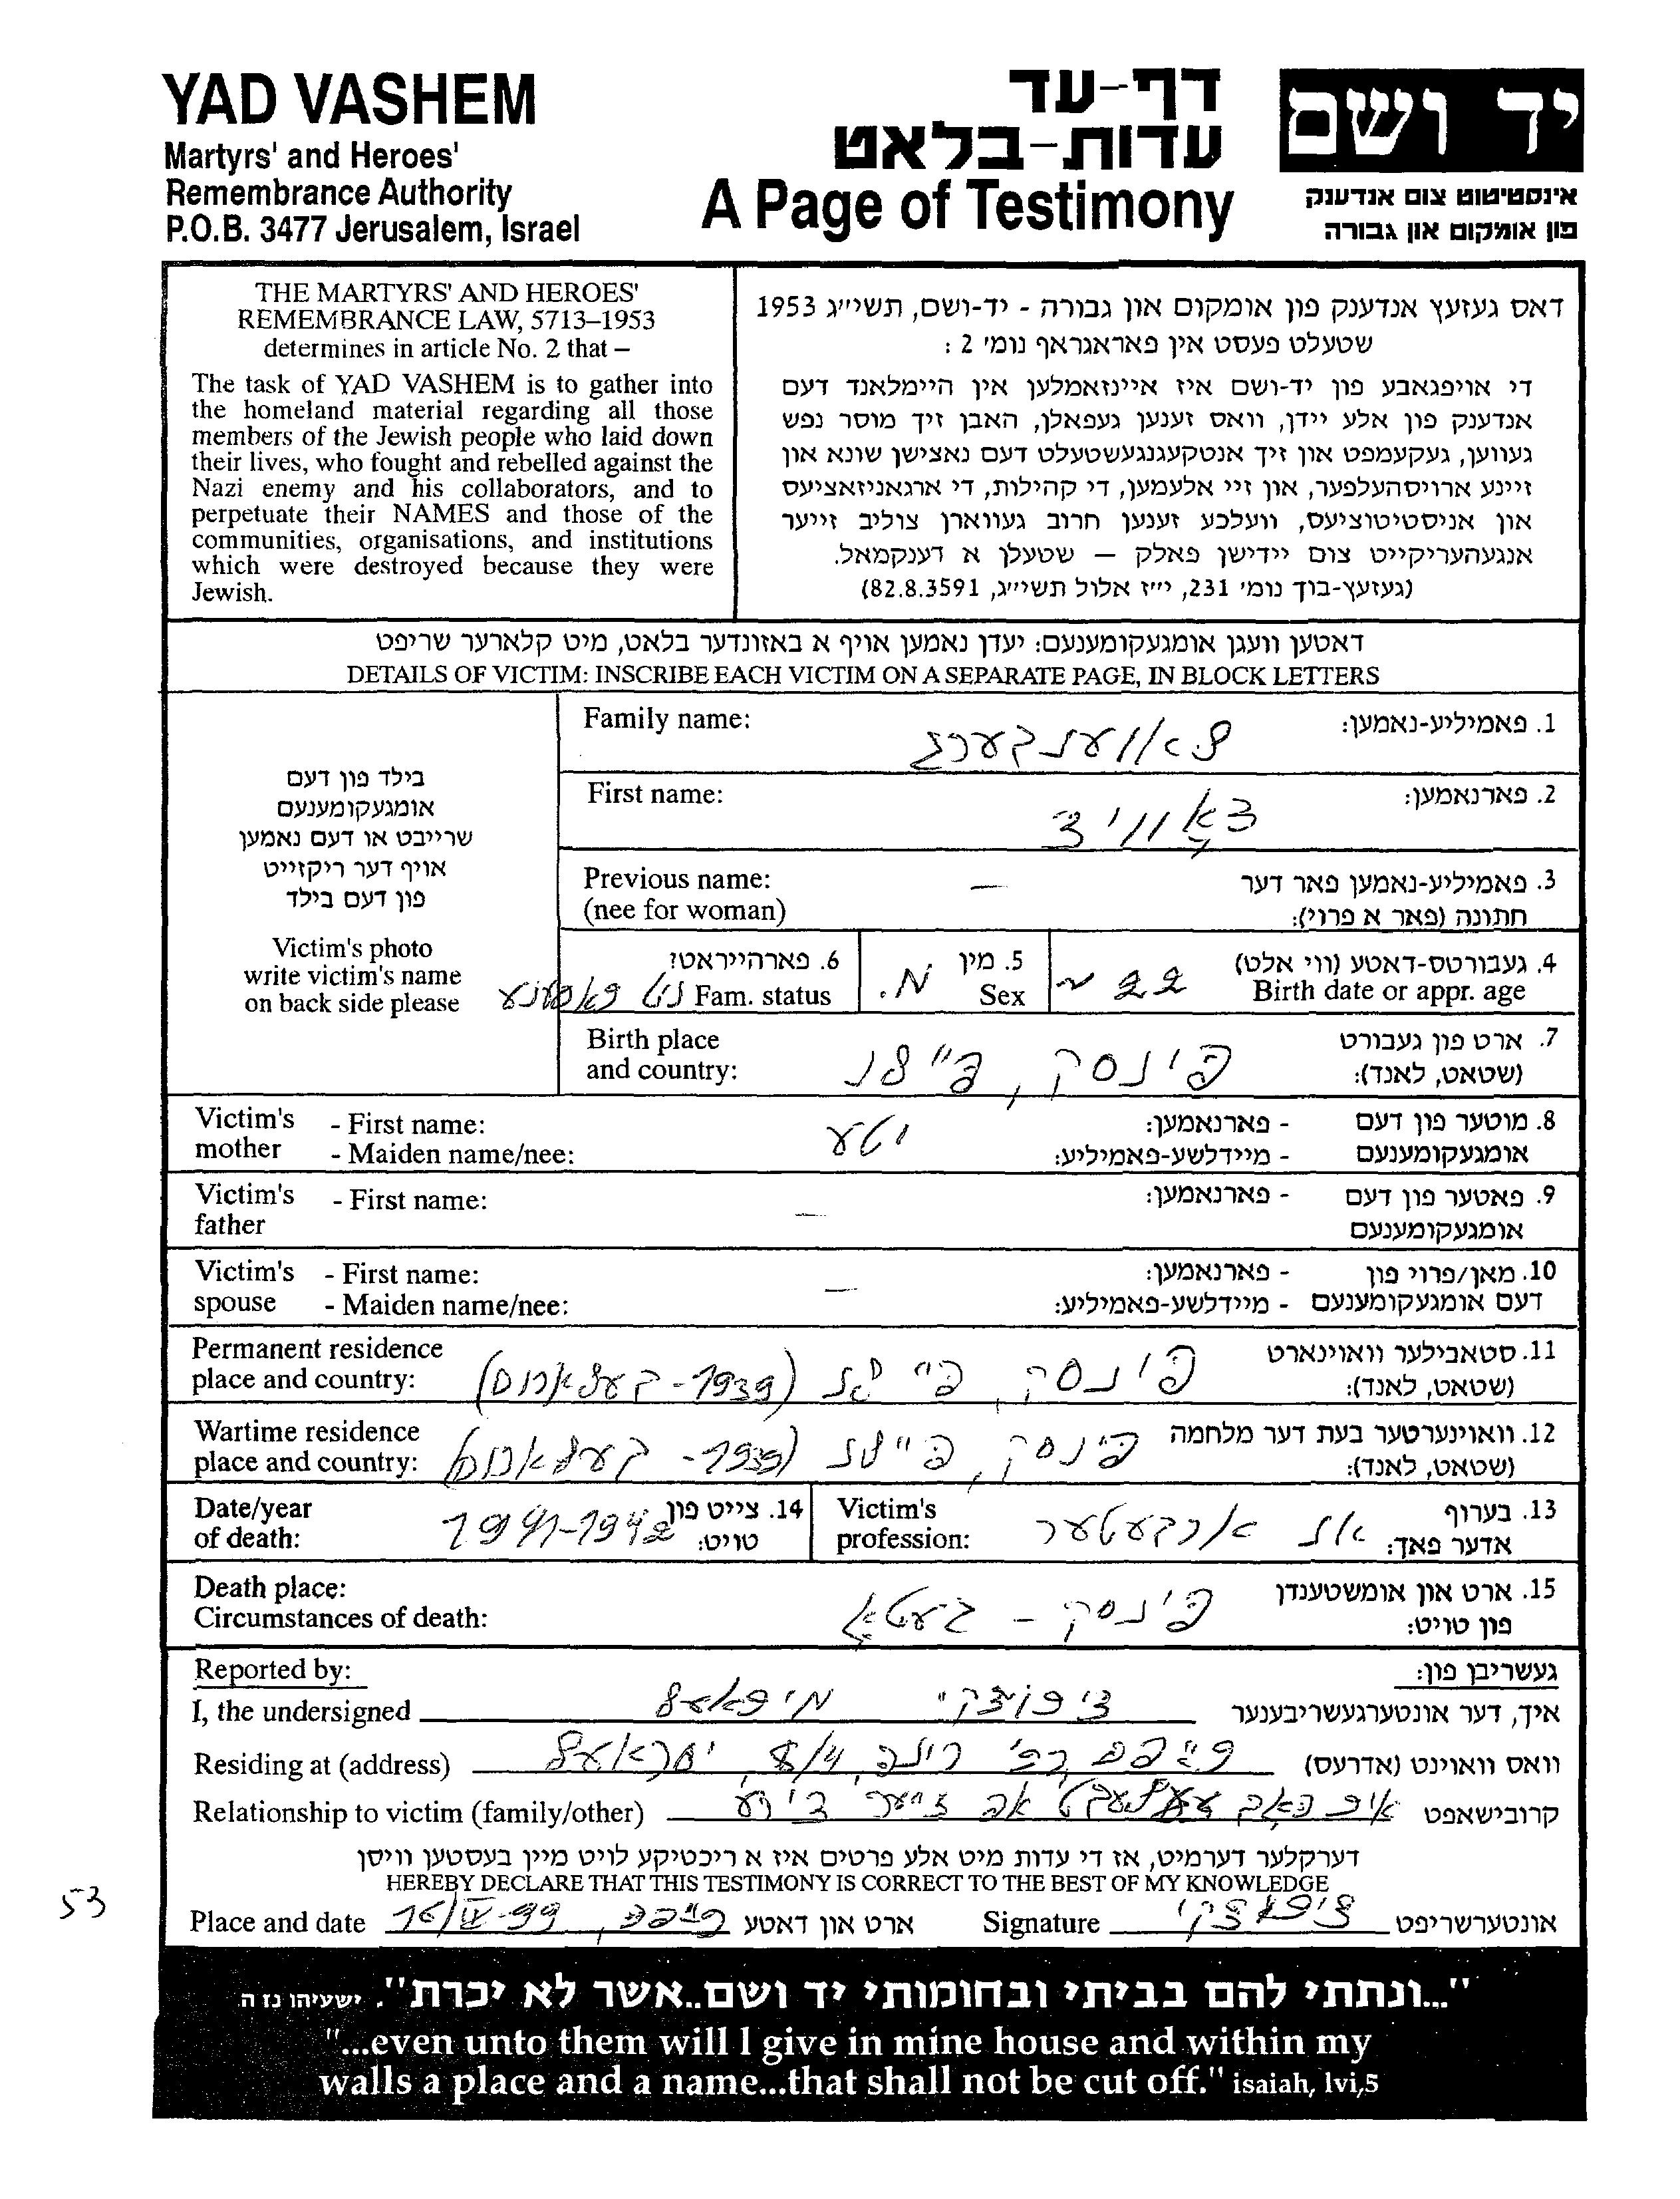 YAD VASHEM
Martyrs' and Heroes'
Remembrance Authority
P.O.B. 3477 Jerusalem, Israel
דף-עד
עדות-בלאט
A Page of Testimony
יד ושם
אינסטיטוט צום אנדענק
פון אומקום און גבורה
THE MARTYRS' AND HEROES'
REMEMBRANCE LAW, 5713–1953
determines in article No. 2 that –
The task of YAD VASHEM is to gather into
the homeland material regarding all those
members of the Jewish people who laid down
their lives, who fought and rebelled against the
Nazi enemy and his collaborators, and to
perpetuate their NAMES and those of the
communities, organisations, and institutions
which were destroyed because they were
Jewish.
דאס געזעץ אנדענק פון אומקום און גבורה - יד-ושם, תשי״ג 1953
שטעלט פעסט אין פאראגראף נומ׳ 2 :
די אויפגאבע פון יד-ושם איז איינזאמלען אין היימלאנד דעם
אנדענק פון אלע יידן, וואס זענען געפאלן, האבן זיך מוסר נפש
געווען, געקעמפט און זיך אנטקעגנגעשטעלט דעם נאצישן שונא און
זיינע ארויסהעלפער, און זיי אלעמען, די קהילות, די ארגאניזאציעס
און אניסטיטוציעס, וועלכע זענען חרוב געווארן צוליב זייער
אנגעהעריקייט צום יידישן פאלק — שטעלן א דענקמאל.
(געזעץ-בוך נומ׳ 231, י״ז אלול תשי״ג, 82.8.3591)
דאטען וועגן אומגעקומענעם: יעדן נאמען אויף א באזונדער בלאט, מיט קלארער שריפט
DETAILS OF VICTIM: INSCRIBE EACH VICTIM ON A SEPARATE PAGE, IN BLOCK LETTERS
בילד פון דעם
אומגעקומענעם
שרייבט או דעם נאמען
אויף דער ריקזייט
פון דעם בילד
Victim's photo
write victim's name
on back side please
Family name: לאווענבערג 1. פאמיליע-נאמען:
First name: דאוויד 2. פארנאמען:
Previous name: — 3. פאמיליע-נאמען פאר דער
(nee for woman) חתונה (פאר א פרוי):
6. פארהייראט? 5. מין 4. געבורטס-דאטע (ווי אלט)
Fam. status ניט Sex .מ ~ 22 Birth date or appr. age
Birth place 7. ארט פון געבורט
and country: פינסק, פיילן (שטאט, לאנד):
Victim's - First name: יטע - פארנאמען: 8. מוטער פון דעם
mother - Maiden name/nee: - מיידלשע-פאמיליע: אומגעקומענעם
Victim's - First name: — - פארנאמען: 9. פאטער פון דעם
father אומגעקומענעם
Victim's - First name: — - פארנאמען: 10. מאן/פרוי פון
spouse - Maiden name/nee: - מיידלשע-פאמיליע: דעם אומגעקומענעם
Permanent residence 11. סטאבילער וואוינארט
place and country: פינסק, פיילן (1939- בעלארוס) (שטאט, לאנד):
Wartime residence 12. וואוינערטער בעת דער מלחמה
place and country: פינסק, פיילן (1939- בעלארוס) (שטאט, לאנד):
Date/year 14. צייט פון Victim's 13. בערוף
of death: 1941-1942 טויט: profession: אן ארבעטער אדער פאך:
Death place: 15. ארט און אומשטענדן
Circumstances of death: פינסק - געטא פון טויט:
Reported by: געשריבן פון:
I, the undersigned מיכאעל איך, דער אונטערגעשריבענער
Residing at (address) 8/4, יסראעל וואס וואוינט (אדרעס)
Relationship to victim (family/other) איך האב קרובישאפט
דערקלער דערמיט, אז די עדות מיט אלע פרטים איז א ריכטיקע לויט מיין בעסטען וויסן
HEREBY DECLARE THAT THIS TESTIMONY IS CORRECT TO THE BEST OF MY KNOWLEDGE
53
Place and date ארט און דאטע Signature אונטערשריפט
"...ונתתי להם בביתי ובחומותי יד ושם..אשר לא יכרת". ישעיהו נז ה
"...even unto them will I give in mine house and within my
walls a place and a name...that shall not be cut off." isaiah, lvi,5